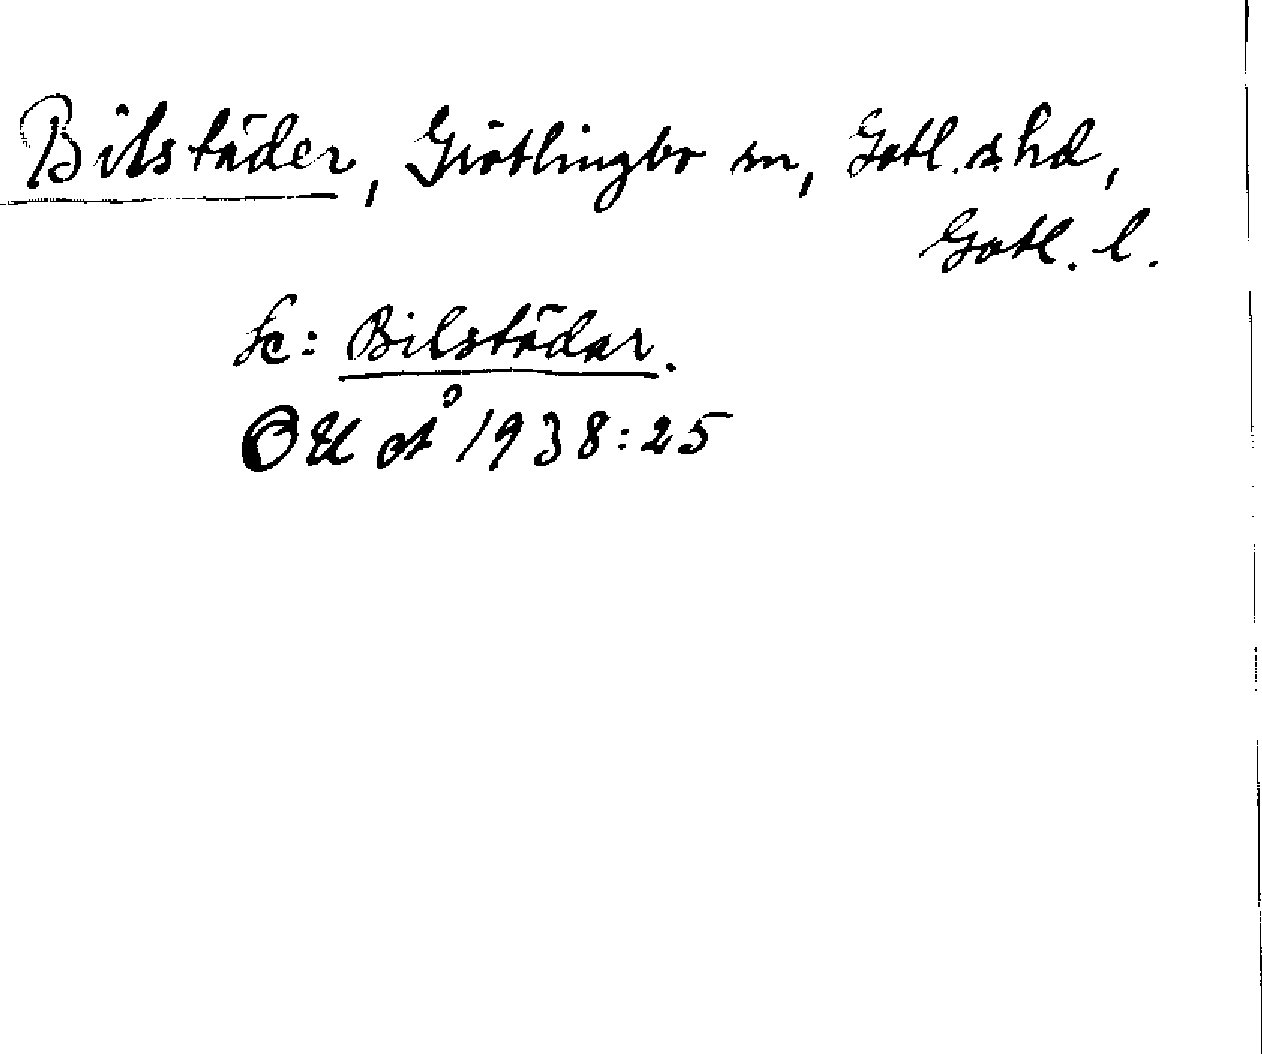 Bilstäder, Grötlingbo sn, Gotl. s. hd,
Gotl. l.
Se: Bilstädar.
OU å 1938:25